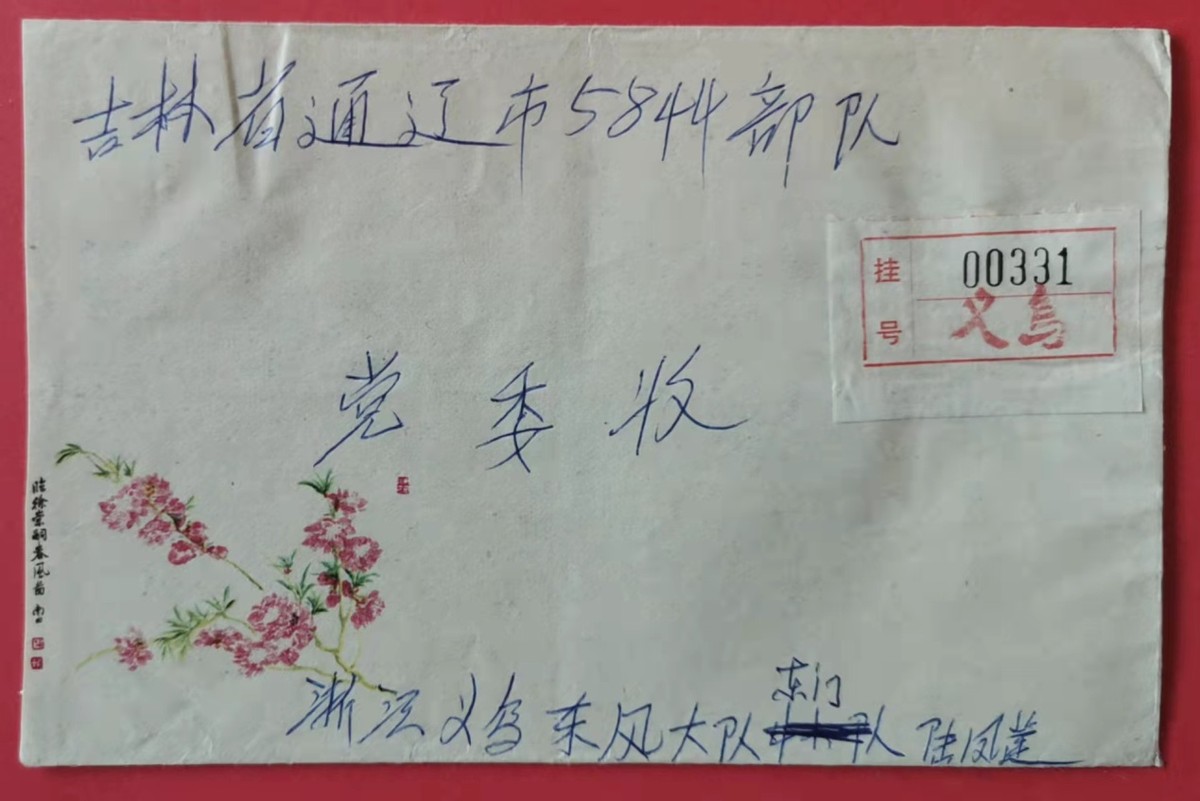 吉林省通辽市5844部队
挂号
00331
义乌
党委收
临徐崇嗣春风图
东门
浙江义乌东风大队 队 陆凤莲